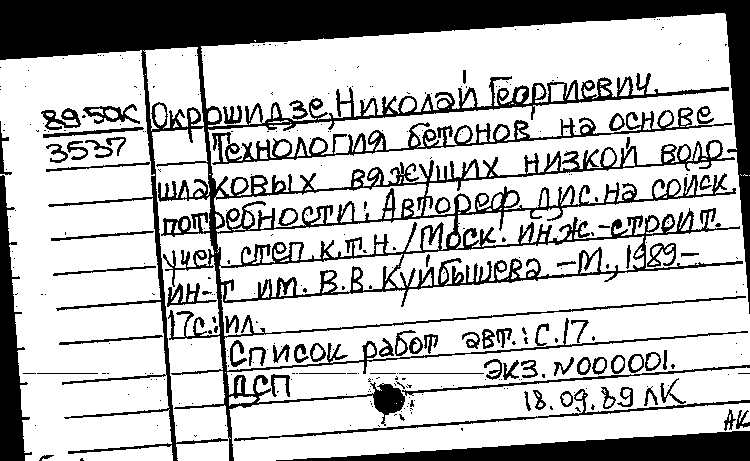 89-50К Окрошидзе, Николай Георгиевич.
3537 Технология бетонов на основе
шлаковых вяжущих низкой водо-
потребности: Автореф. дис. на соиск.
учен. степ. к.т.н. / Моск. инж.-строит.
ин-т им. В.В. Куйбышева. -М., 1989.-
17с.: ил.
Список работ авт.: с. 17.
ДСП экз. N000001.
18.09.89 ЛК
АК